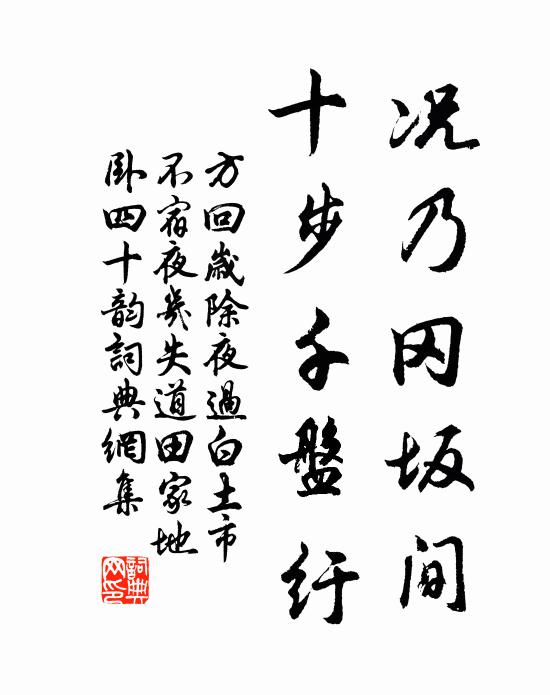 况乃冈坂间
十步千盤纡
方回歲除夜過白土市
不宿夜幾失道田家地
卧四十韵詞典網集
詞典
网印